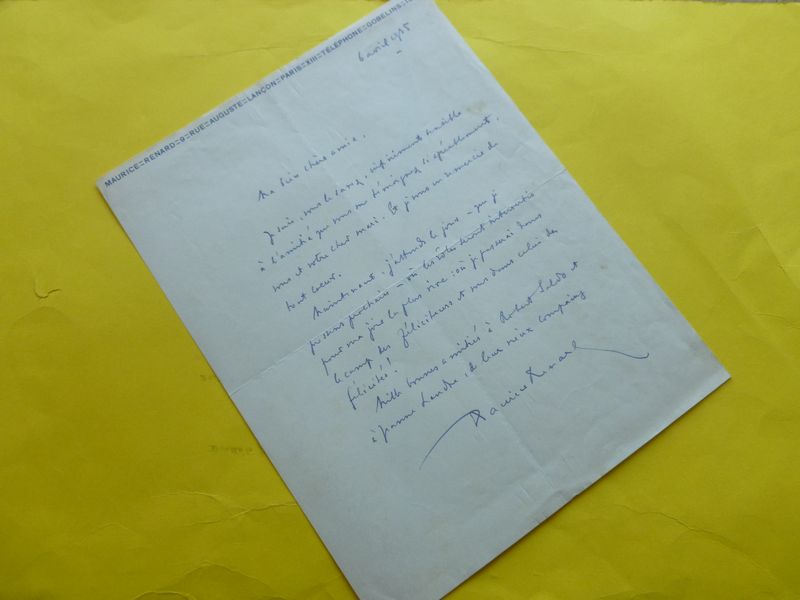 MAURICE=RENARD=9=RUE=AUGUSTE=LANÇON=PARIS=XIII=TELEPHONE=GOBELINS=10
6 avril 1935
Ma bien chère amie,
Je suis, vous le savez, infiniment sensible
à l'amitié que vous me témoignez si équitablement,
vous et votre cher mari. Et je vous en remercie de
tout cœur.
Maintenant, j'attends le jour – que je
pressens prochain – où les rôles seront intervertis
pour ma joie la plus vive : où je passerai dans
le camp des féliciteurs et vous dans celui des
félicités!
Mille bonnes amitiés à Robert et
à Jeanne Landre, de leur vieux compaing
Maurice Renard